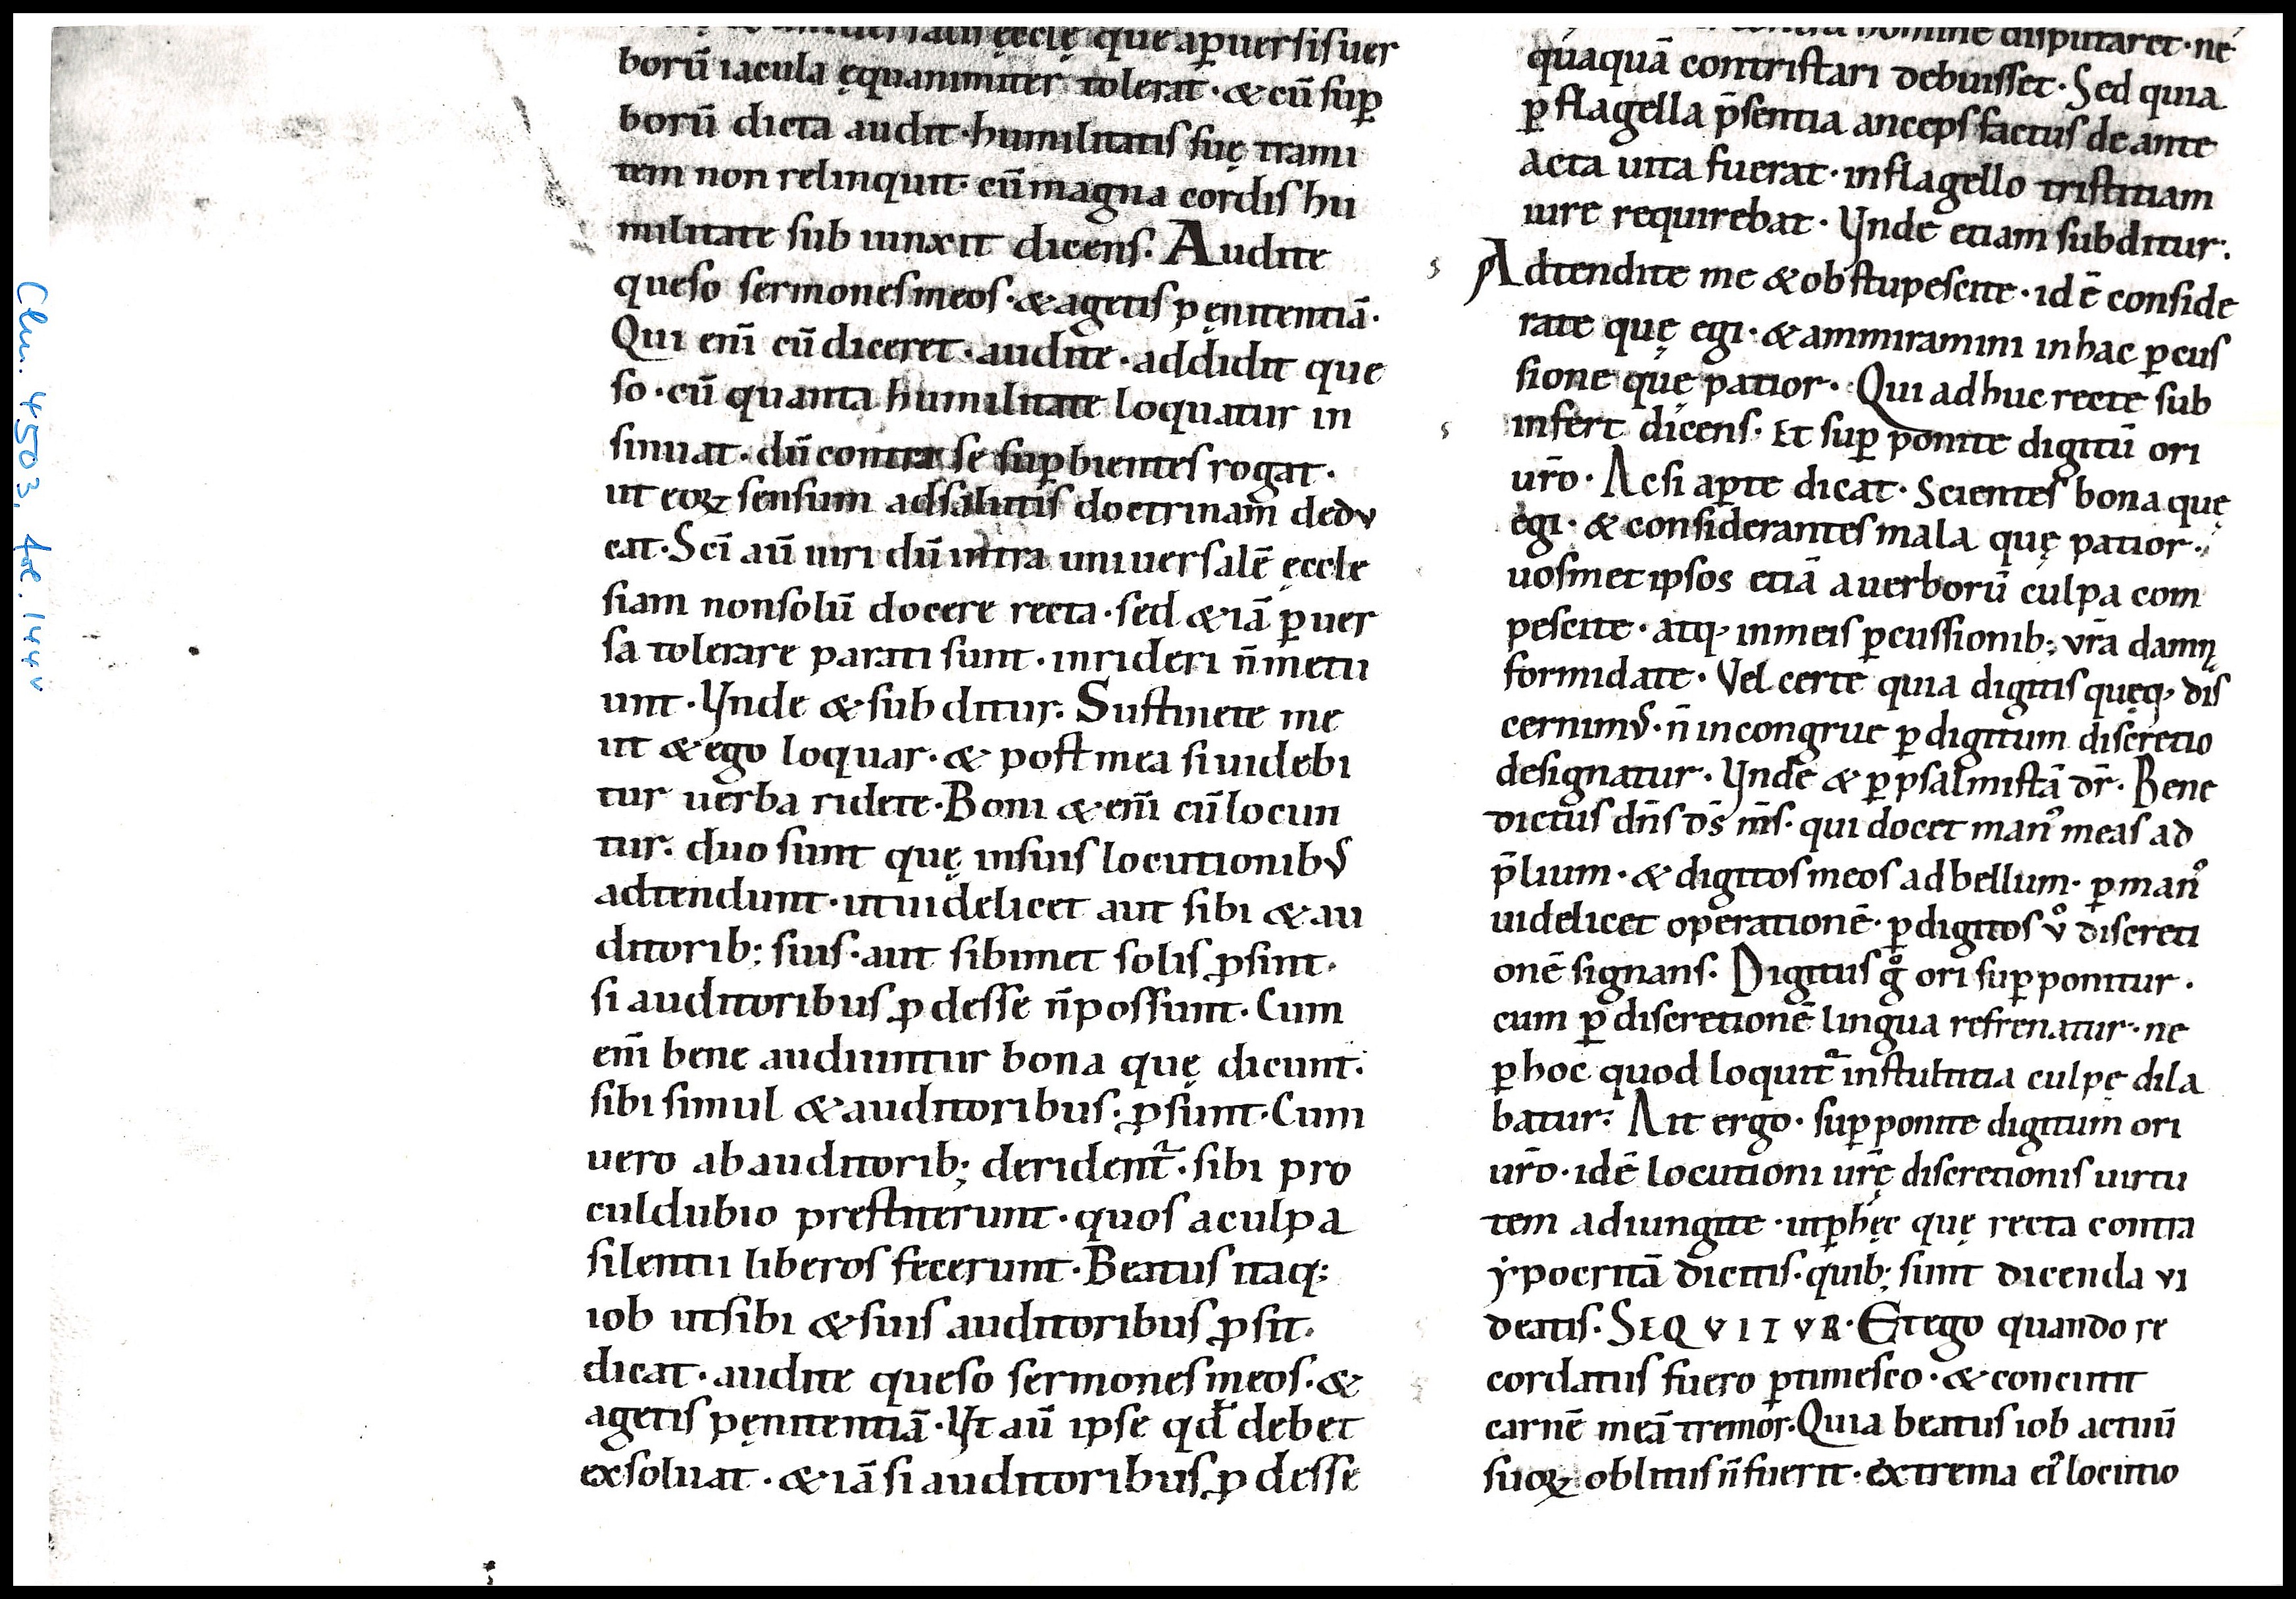 ęcclę que a ꝑuersis uer
borū iacula ęquanimiter tolerat · & cū suꝑ
borū dicta audit · humilitatis suę trami
tem non relinquit · cū magna cordis hu
militate sub iunxit dicens · Audite
queso sermones meos · & agetis pęnitentiā ·
Qui enī cū diceret · audite · addidit que
so · cū quanta humilitate loquatur in
sinuat · dū contra se suꝑbientes rogat ·
ut eoꝝ sensum ad salutis doctrinam dedu
cat · Scī aū uiri dū intra uniuersalē ęccle
siam non solū docere recta · sed & iā ꝑuer
sa tolerare parati sunt · inrideri n̄ metu
unt · Unde & sub ditur · Sustinete me
ut & ego loquar · & post mea si uidebi
tur uerba ridete · Boni & enī cū locun
tur · duo sunt quę in suis locutionibꝰ
adtendunt · ut uidelicet aut sibi & au
ditorib; suis · aut sibimet solis ꝓsint ·
si auditoribus ꝓdesse n̄ possunt · Cum
enī bene audiuntur bona quę dicunt ·
sibi simul & auditoribus ꝓsunt · Cum
uero ab auditorib; deridentᷣ · sibi pro
culdubio prestiterunt · quos a culpa
silentii liberos fecerunt · Beatus itaq;
iob ut sibi & suis auditoribus ꝓsit ·
dicat · audite queso sermones meos · &
agetis pęnitentiā · Ut aū ipse qđ debet
exsoluat · & iā si auditoribus ꝓdesse
homine disputaret · ne
quaquā contristari debuisset · Sed quia
ꝑ flagella p̄sentia anceps factus de ante
acta uita fuerat · in flagello tristitiam
iure requirebat · Unde etiam subditur ·
Adtendite me & obstupescite · idē conside
rate quę egi · & ammiramini in hac ꝑcus
sione quę patior · Qui adhuc recte sub
infert dicens · Et suꝑ ponite digitū ori
ur̄o · Ac si aꝑte dicat · Scientes bona quę
egi · & considerantes mala quę patior ·
uosmet ipsos etiā a uerborū culpa com
pescite · atq; in meis ꝑcussionib; ur̄a damn
formidate · Vel certe quia digitis quęq; dis
cernimꝰ · n̄ incongrue ꝑ digitum discretio
designatur · Unde & ꝑ psalmistā dr̄ · Bene
dictus dn̄s ds̄ ms̄ · qui docet manꝰ meas ad
p̄lium · & digitos meos ad bellum · ꝑ manꝰ
uidelicet operationē · ꝑ digitos uͦ discreti
onē signans · Digitus gͦ ori suꝑponitur ·
cum ꝑ discretionē lingua refrenatur · ne
ꝑ hoc quod loquitᷣ in stultitia culpę dila
batur · Ait ergo · suꝑponite digitum ori
ur̄o · idē locutioni ur̄ę discretionis uirtu
tem adiungite · ut ꝑ hęc quę recta contra
ypocritā dicitis · quib; sunt dicenda ui
deatis · SEQVITVR · Et ego quando re
cordatus fuero ꝑtimesco · & concutit
carnē meā tremor · Quia beatus iob actuū
suoꝝ oblitus n̄ fuerit · extrema eiꝰ locutio
Clm. 4503, fol. 144v